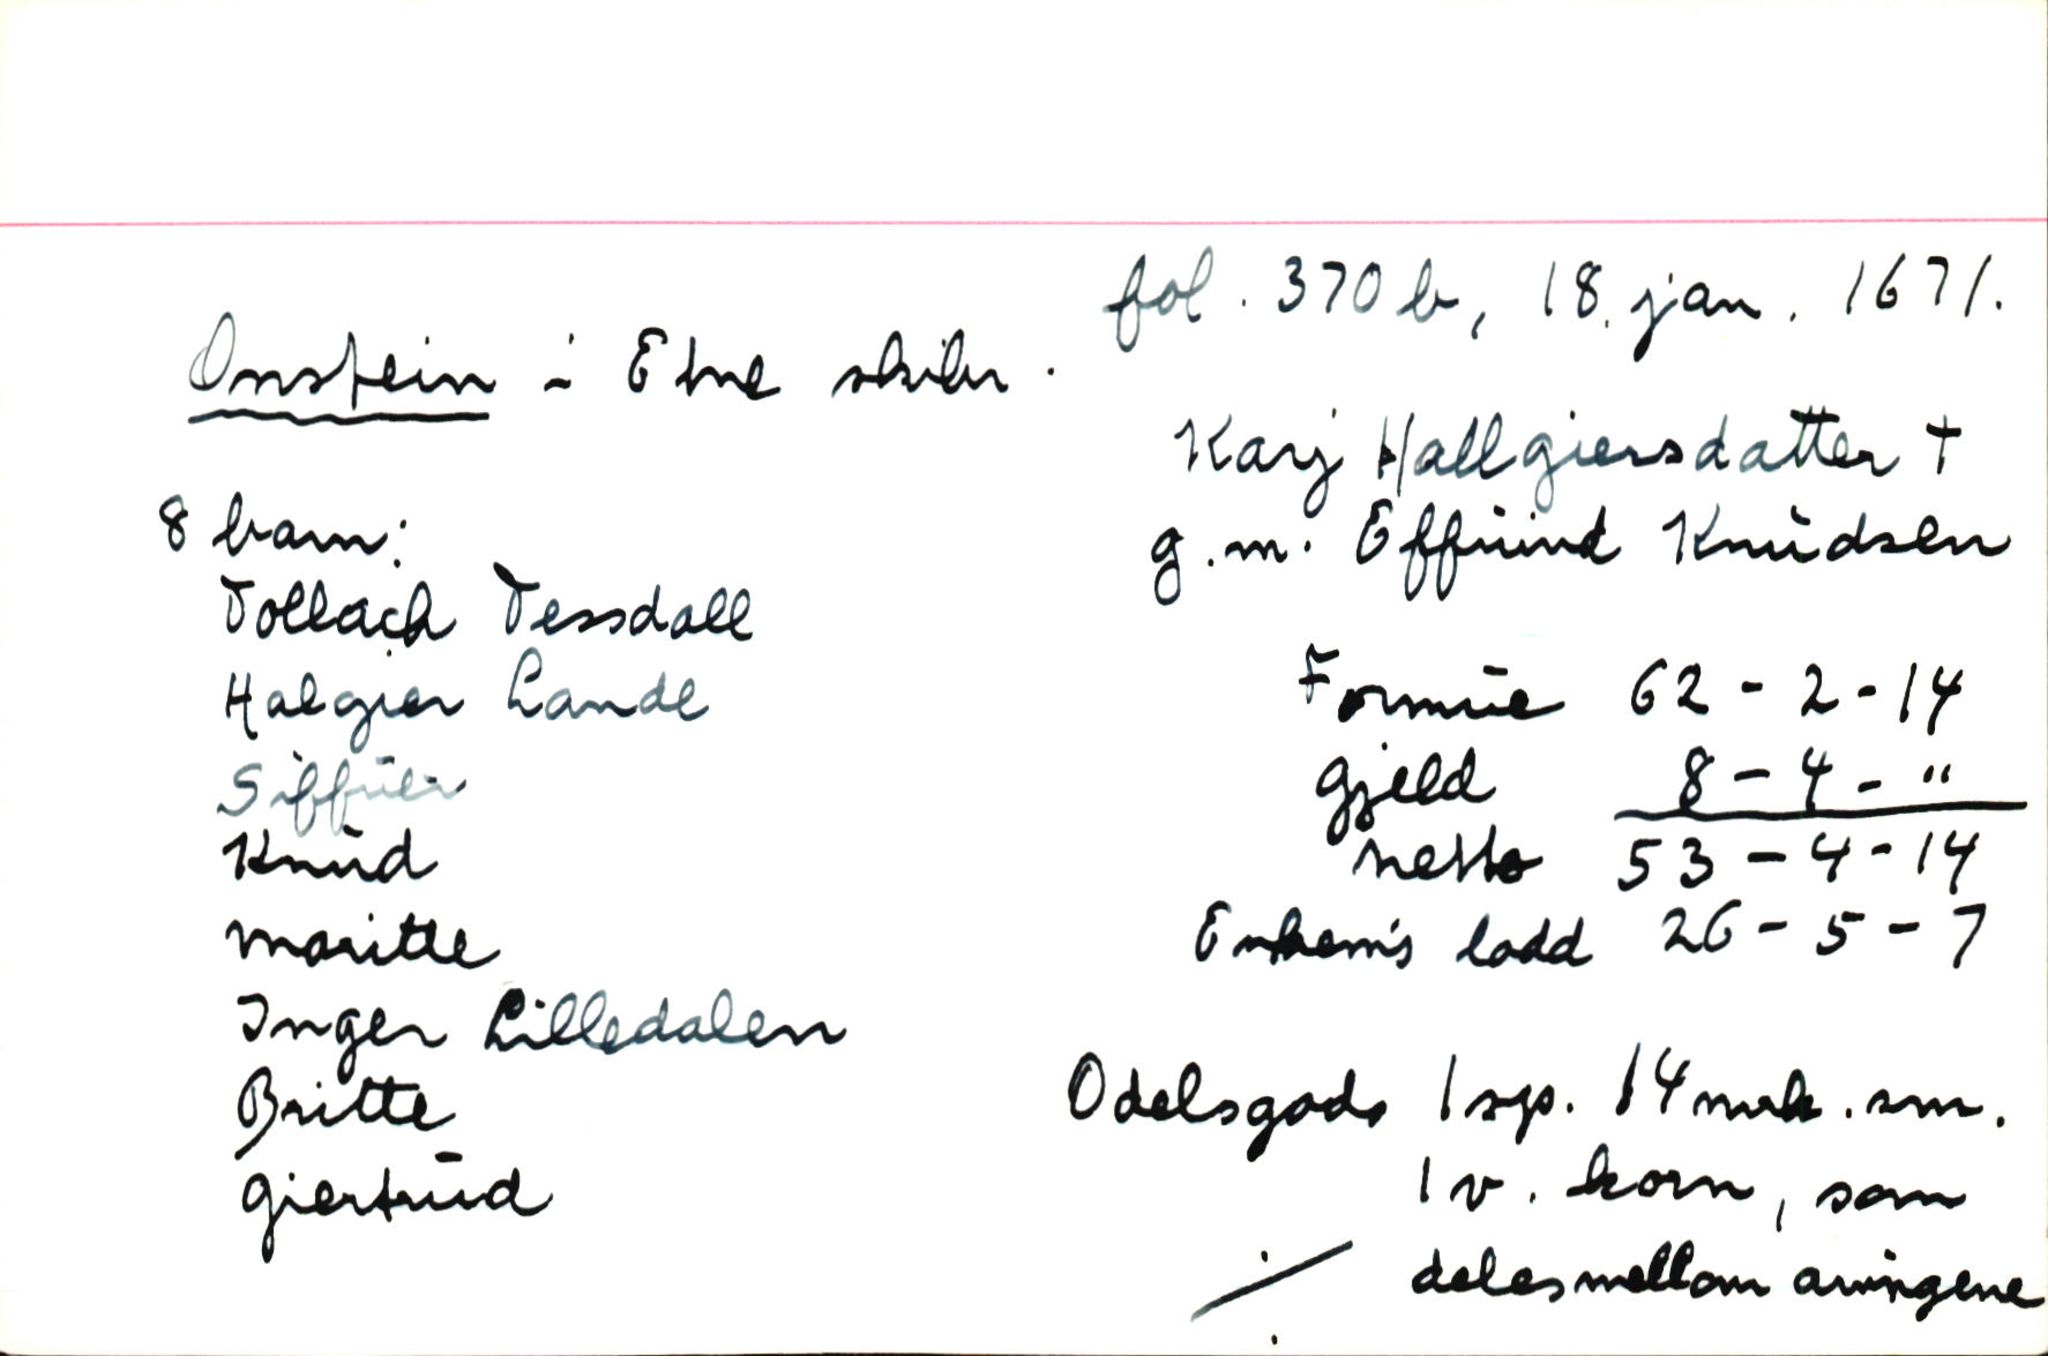 fol. 370 b, 18. jan. 1671.
Onstein i Etne skibr.
Karj Hallgiersdatter †
g.m. Effuind Knudsen
8 barn:
Tollach Tessdall
Halgier Lande
Siffuer
Knud
Maritte
Inger Lilledalen
Britte
Giertrud
Formue 62 - 2 - 14
Gjeld 8 - 4 - "
netto 53 - 4 - 14
Enkem's lodd 26 - 5 - 7
Odelsgods 1 sp. 14 mrk. sm.
1 v. korn, som
deles mellom arvingene
./.